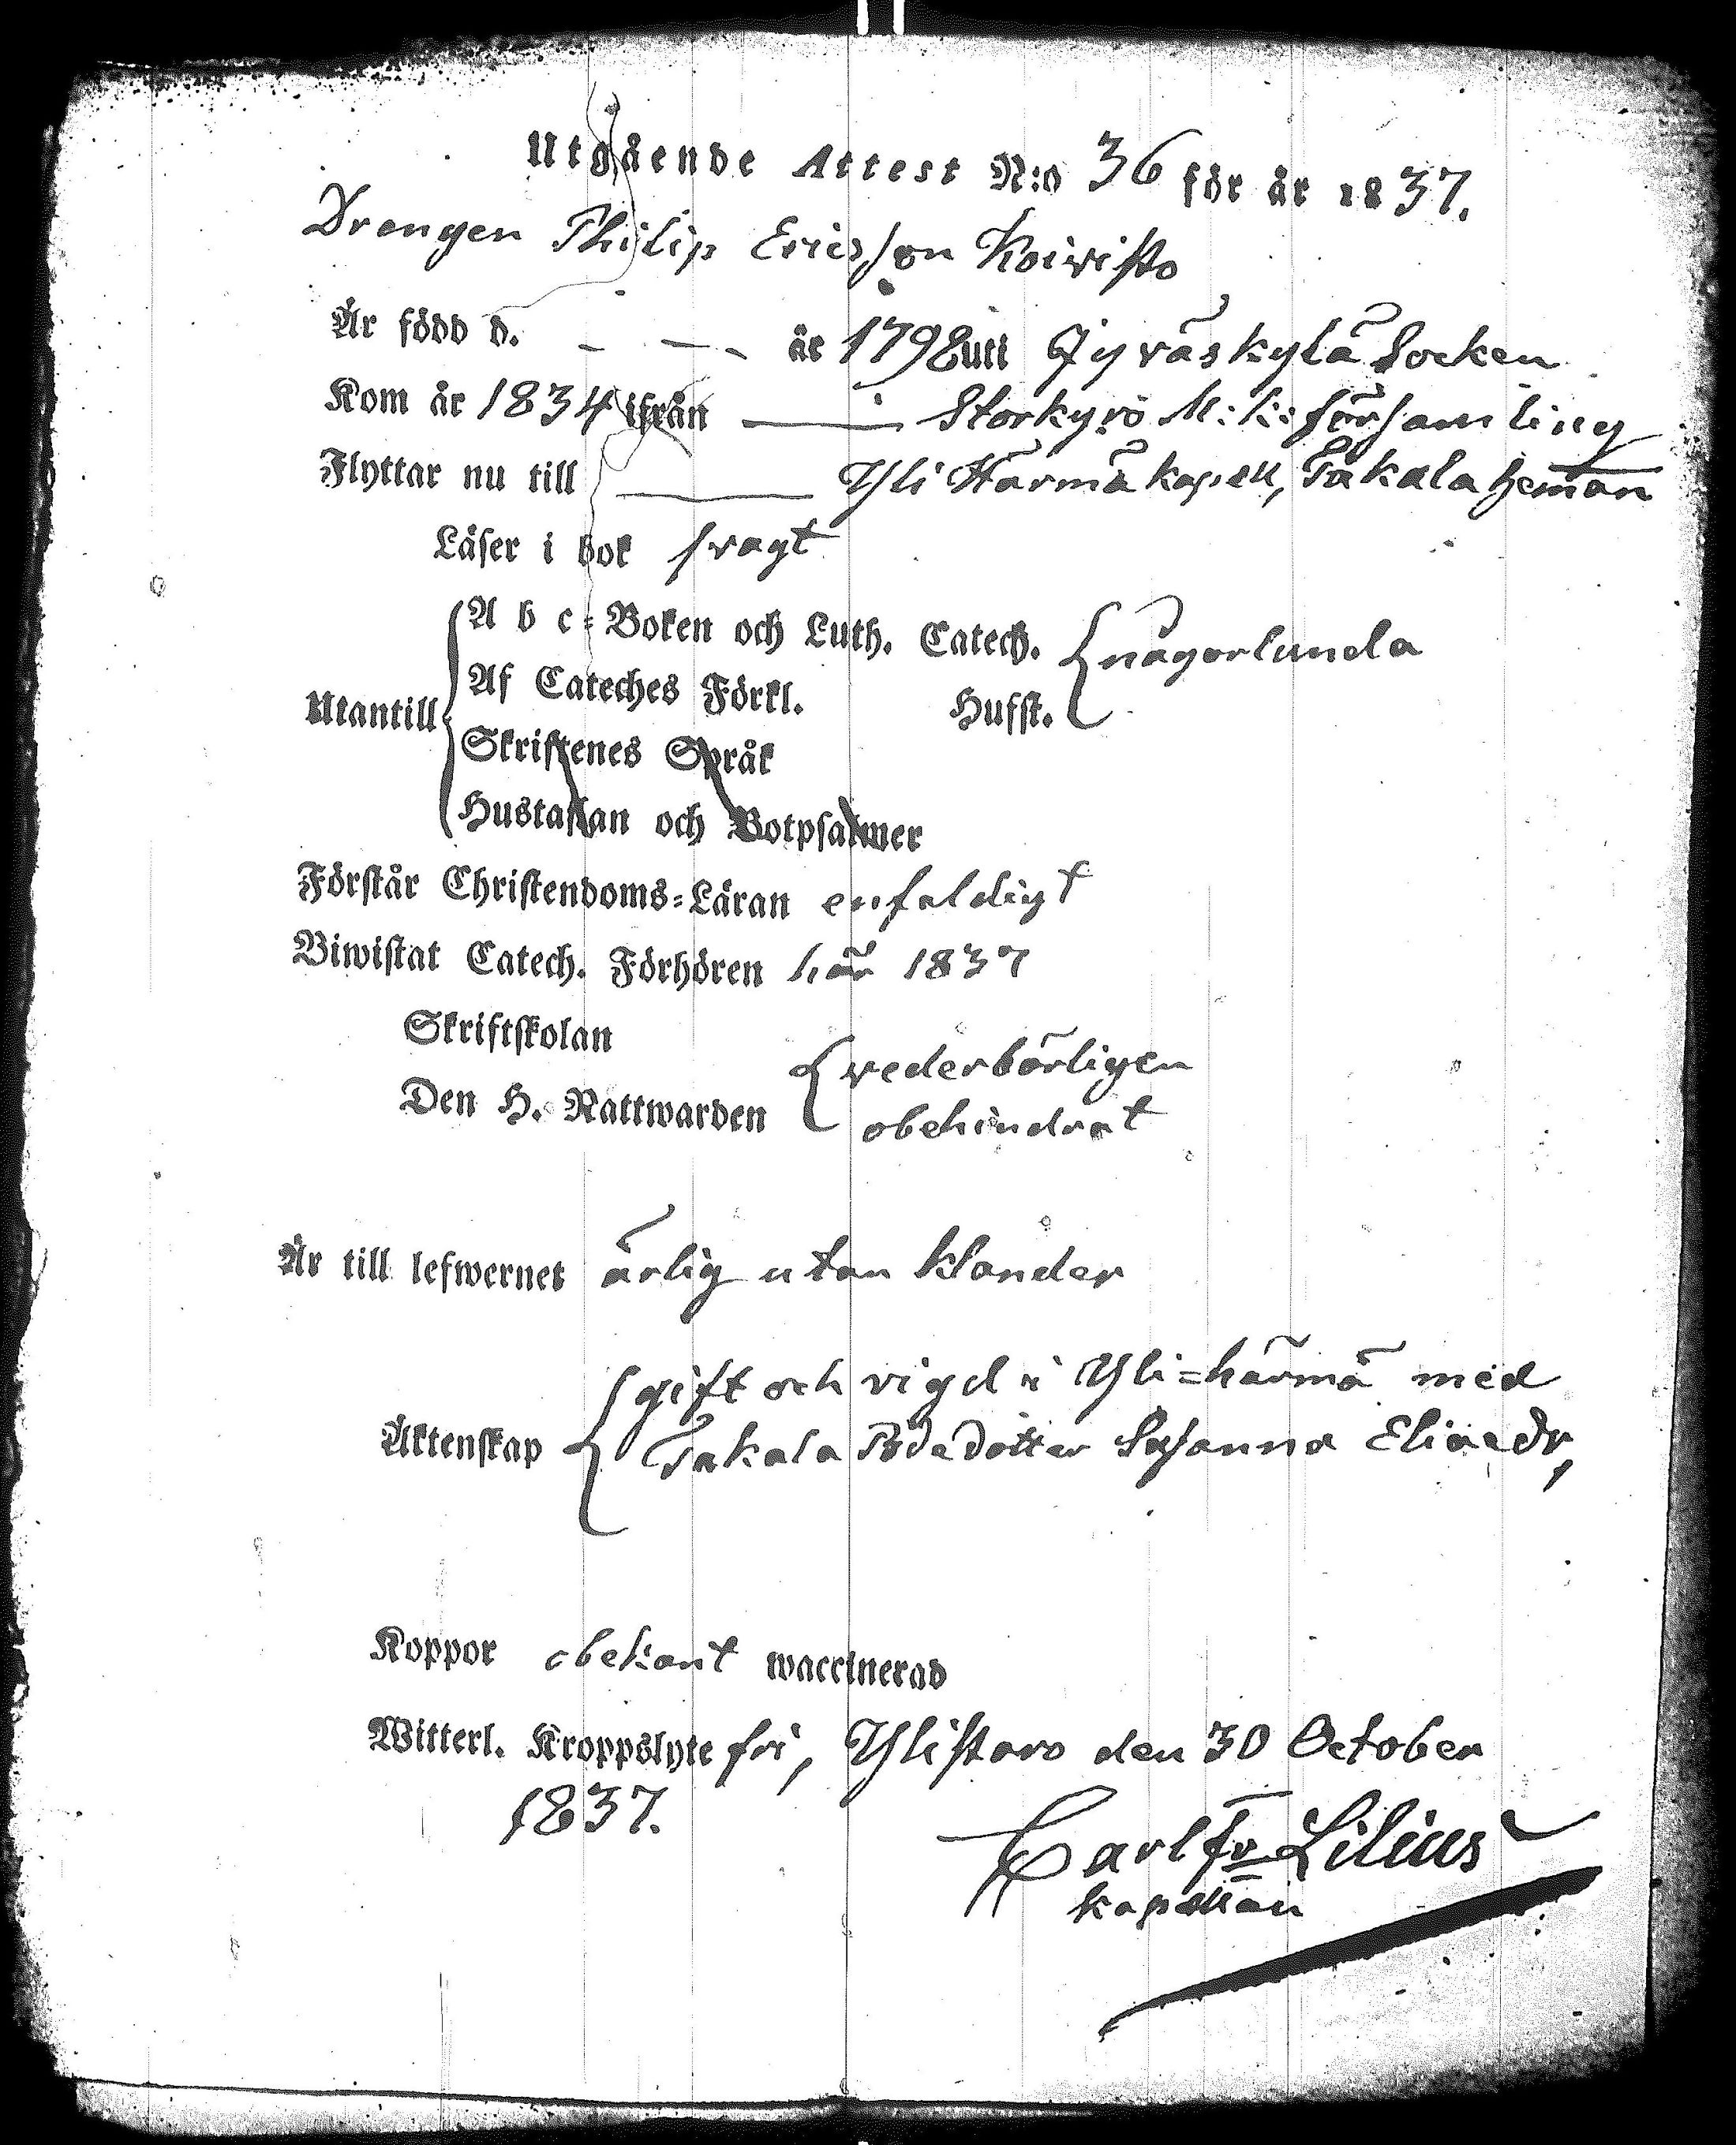 Utgående Attest N:o 36 för år 1837.
Drengen Philip Ericsson Koivisto
Är född d. _ _ _ år 1798 uti Jyväskylä Socken
Kom år 1834 ifrån — Storkyrö M: k: församling
Flyttar nu till — Yli Härmä kapell, Takala heman
Läser i bok svagt
Utantill
A b c-Boken och Luth. Catech. någorlunda
Af Cateches Förkl. Husst.
Skriftenes Språk
Hustaflan och Botpsalmer
Förstår Christendoms-Läran enfaldigt
Biwistat Catech. Förhören här 1837
Skriftskolan vederbörligen
Den H. Nattwarden obehindrat
Är till lefwernet ärlig utan klander
gift och vigd i Yli=härmä med
Äktenskap Takala Dotter Susanna Eliaedr,
Koppor obekant waccinerad
Witterl. Kroppslyte fri, Ylistaro den 30 October
1837.
Carl Fr Lilius
kapellan